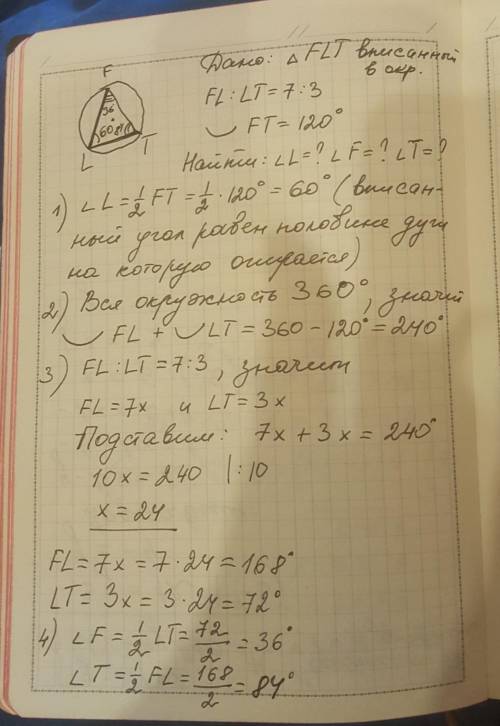 Дано: △ FLT вписанный
в окр.
F
36
60°
84°
L
T
FL : LT = 7 : 3
◡ FT = 120°
Найти: ∠L = ? ∠F = ? ∠T = ?
1) ∠L = 1/2 FT = 1/2 · 120° = 60° (вписан-
ный угол равен половине дуги
на которую опирается)
2) Вся окружность 360°, значит
◡ FL + ◡ LT = 360 - 120° = 240°
3) FL : LT = 7 : 3, значит
FL = 7x и LT = 3x
Подставим: 7x + 3x = 240°
10x = 240 | : 10
x = 24
FL = 7x = 7 · 24 = 168°
LT = 3x = 3 · 24 = 72°
4) ∠F = 1/2 LT = 72/2 = 36°
∠T = 1/2 FL = 168/2 = 84°